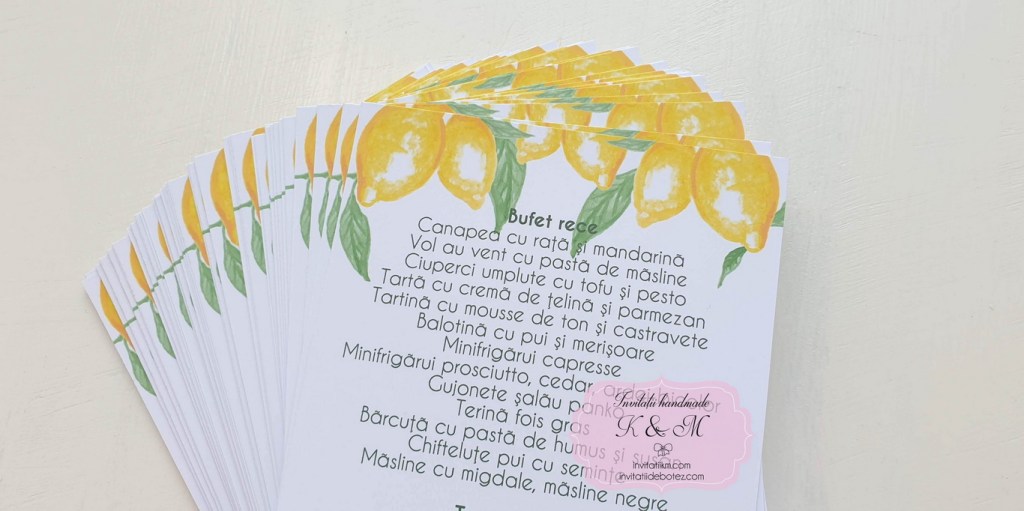 Bufet rece
Canapea cu rață și mandarină
Vol au vent cu pastă de măsline
Ciuperci umplute cu tofu și pesto
Tartă cu cremă de țelină și parmezan
Tartină cu mousse de ton și castravete
Balotină cu pui și merișoare
Minifrigărui capresse
Minifrigărui prosciutto, cedar, ardei
Gujonete șalău panko
Terină fois gras
Bărcuță cu pastă de humus și
Chifteluțe pui cu semințe
Măsline cu migdale, măsline negre
Invitatii handmade
K & M
invitatiikm.com
invitatiidebotez.com